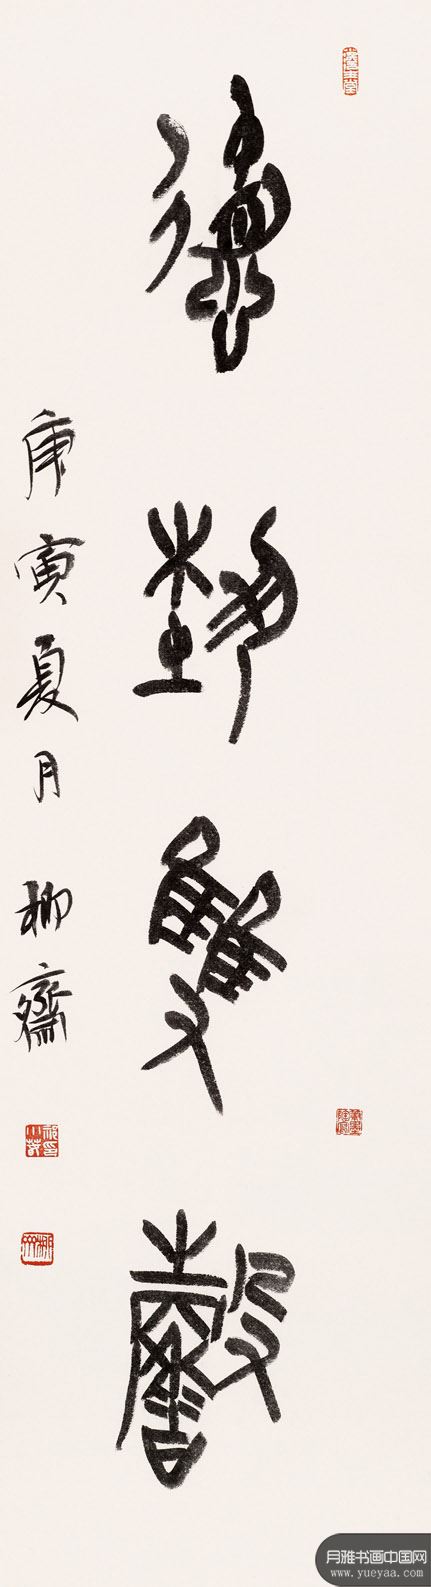 德艺双馨
庚寅夏月 柳齋
月雅书画中国网
www.yueyaa.com